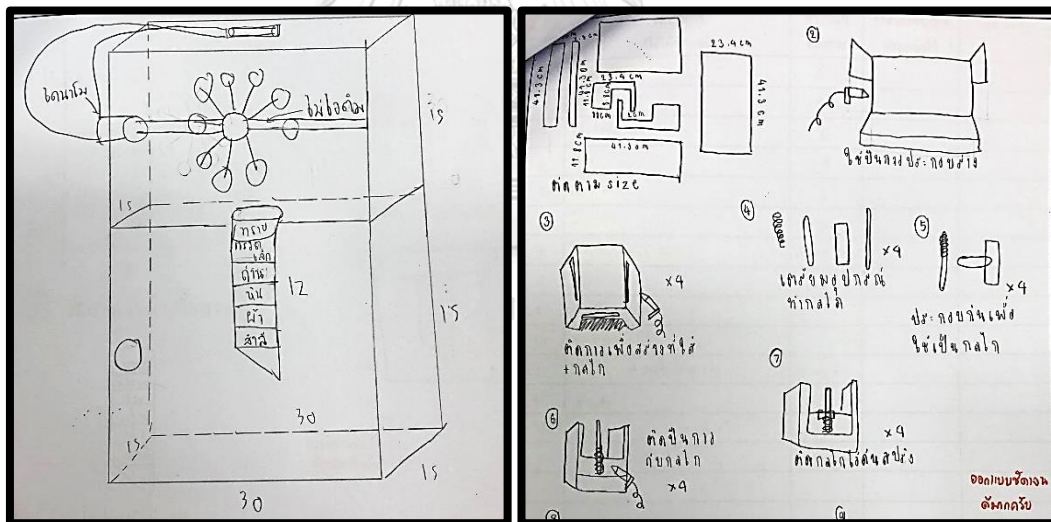 ไดนาโม
ไม้ไอติม
15
15
ทราย
กรวด
เล็ก
ถ่าน
หิน
ผ้า
สำลี
12
15
15
30
15
30
41.3 cm
23.4 cm
23.4 cm
41.3 cm
41.3cm
11.8cm
ตัดตาม size
②
ใช้ปืนกาวประกอบร่าง
③
×4
ติดกาวเพื่อสร้างที่ใส่
+ กลไก
④
×4
เตรียมอุปกรณ์
ทำกลไก
⑤
×4
ประกอบกันเพื่อ
ใช้เป็นกลไก
⑥
ติดปืนกาว
กับกลไก
×4
⑦
×4
ติดกลไกไว้ดันสปริง
ออกแบบชัดเจน
ดีมากครับ